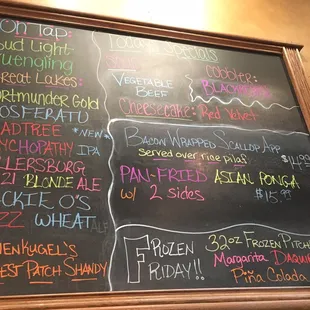 On Tap:
oud Light
uengling
reat Lakes:
ortmunder Gold
osferatu
adtree *new*
ychopathy IPA
llersburg
21 Blonde Ale
ckie O's
zz Wheat Ale
nenkugel's
est Patch Shandy
Today's Specials
Vegetable
Beef
Cobbler:
Blackberry
Cheesecake: Red Velvet
Bacon Wrapped Scallop App
served over rice pilaf $14.99
Pan-Fried Asian Ponga
w/ 2 sides $15.99
Frozen
Friday!!
32oz Frozen Pitch
Margarita Daquir
Piña Colada